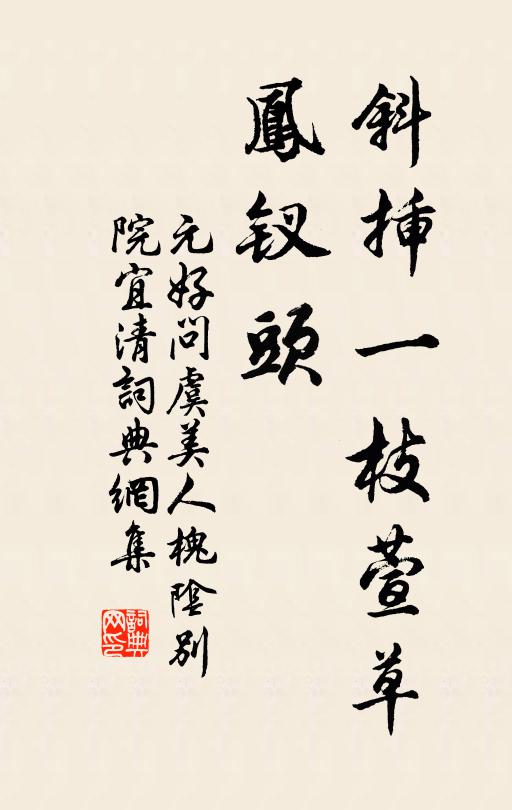 斜插一枝萱草
鳳釵頭
元好問虞美人槐陰別
院宜清詞典網集
詞典網印